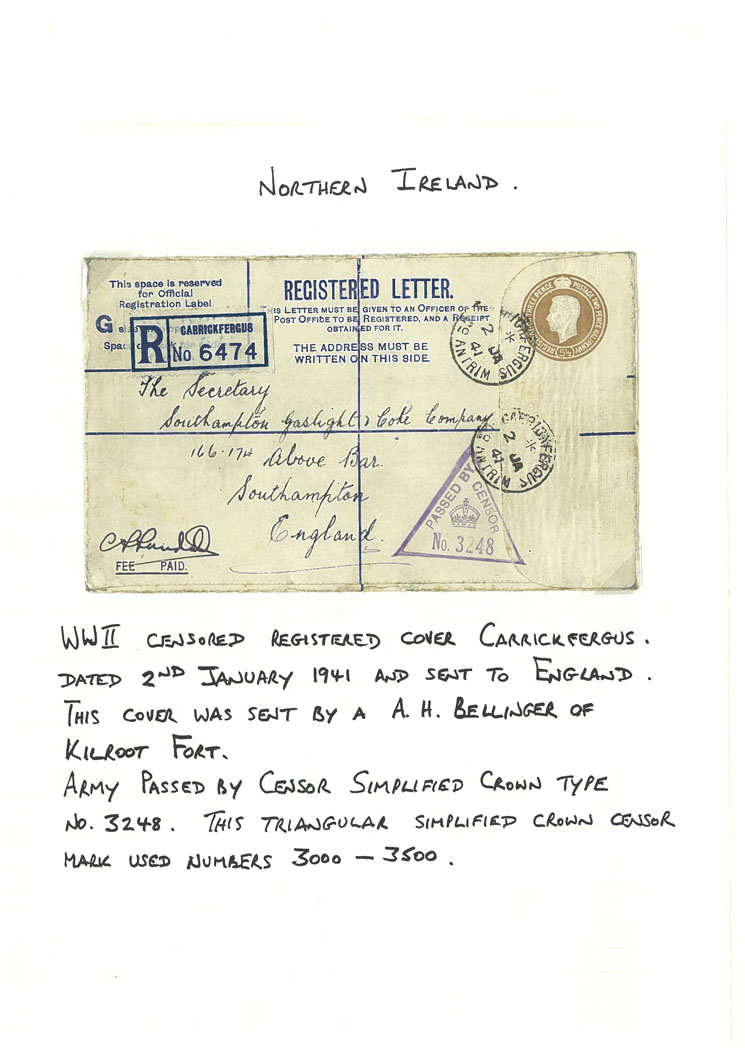 NORTHERN IRELAND.
This space is reserved
for Official
Registration Label.
G
R CARRICKFERGUS
No. 6474
REGISTERED LETTER.
THIS LETTER MUST BE GIVEN TO AN OFFICER OF THE
POST OFFICE TO BE REGISTERED, AND A RECEIPT
OBTAINED FOR IT.
THE ADDRESS MUST BE
WRITTEN ON THIS SIDE.
CARRICKFERGUS
2 JA
41
CO ANTRIM
The Secretary
Southampton Gaslight & Coke Company
166-174 Above Bar.
Southampton
England.
CARRICKFERGUS
2 JA
41
CO ANTRIM
PASSED BY CENSOR
No. 3248
FEE PAID.
WWII CENSORED REGISTERED COVER CARRICKFERGUS.
DATED 2ND JANUARY 1941 AND SENT TO ENGLAND.
THIS COVER WAS SENT BY A A. H. BELLINGER OF
KILROOT FORT.
ARMY PASSED BY CENSOR SIMPLIFIED CROWN TYPE
NO. 3248. THIS TRIANGULAR SIMPLIFIED CROWN CENSOR
MARK USED NUMBERS 3000 — 3500.